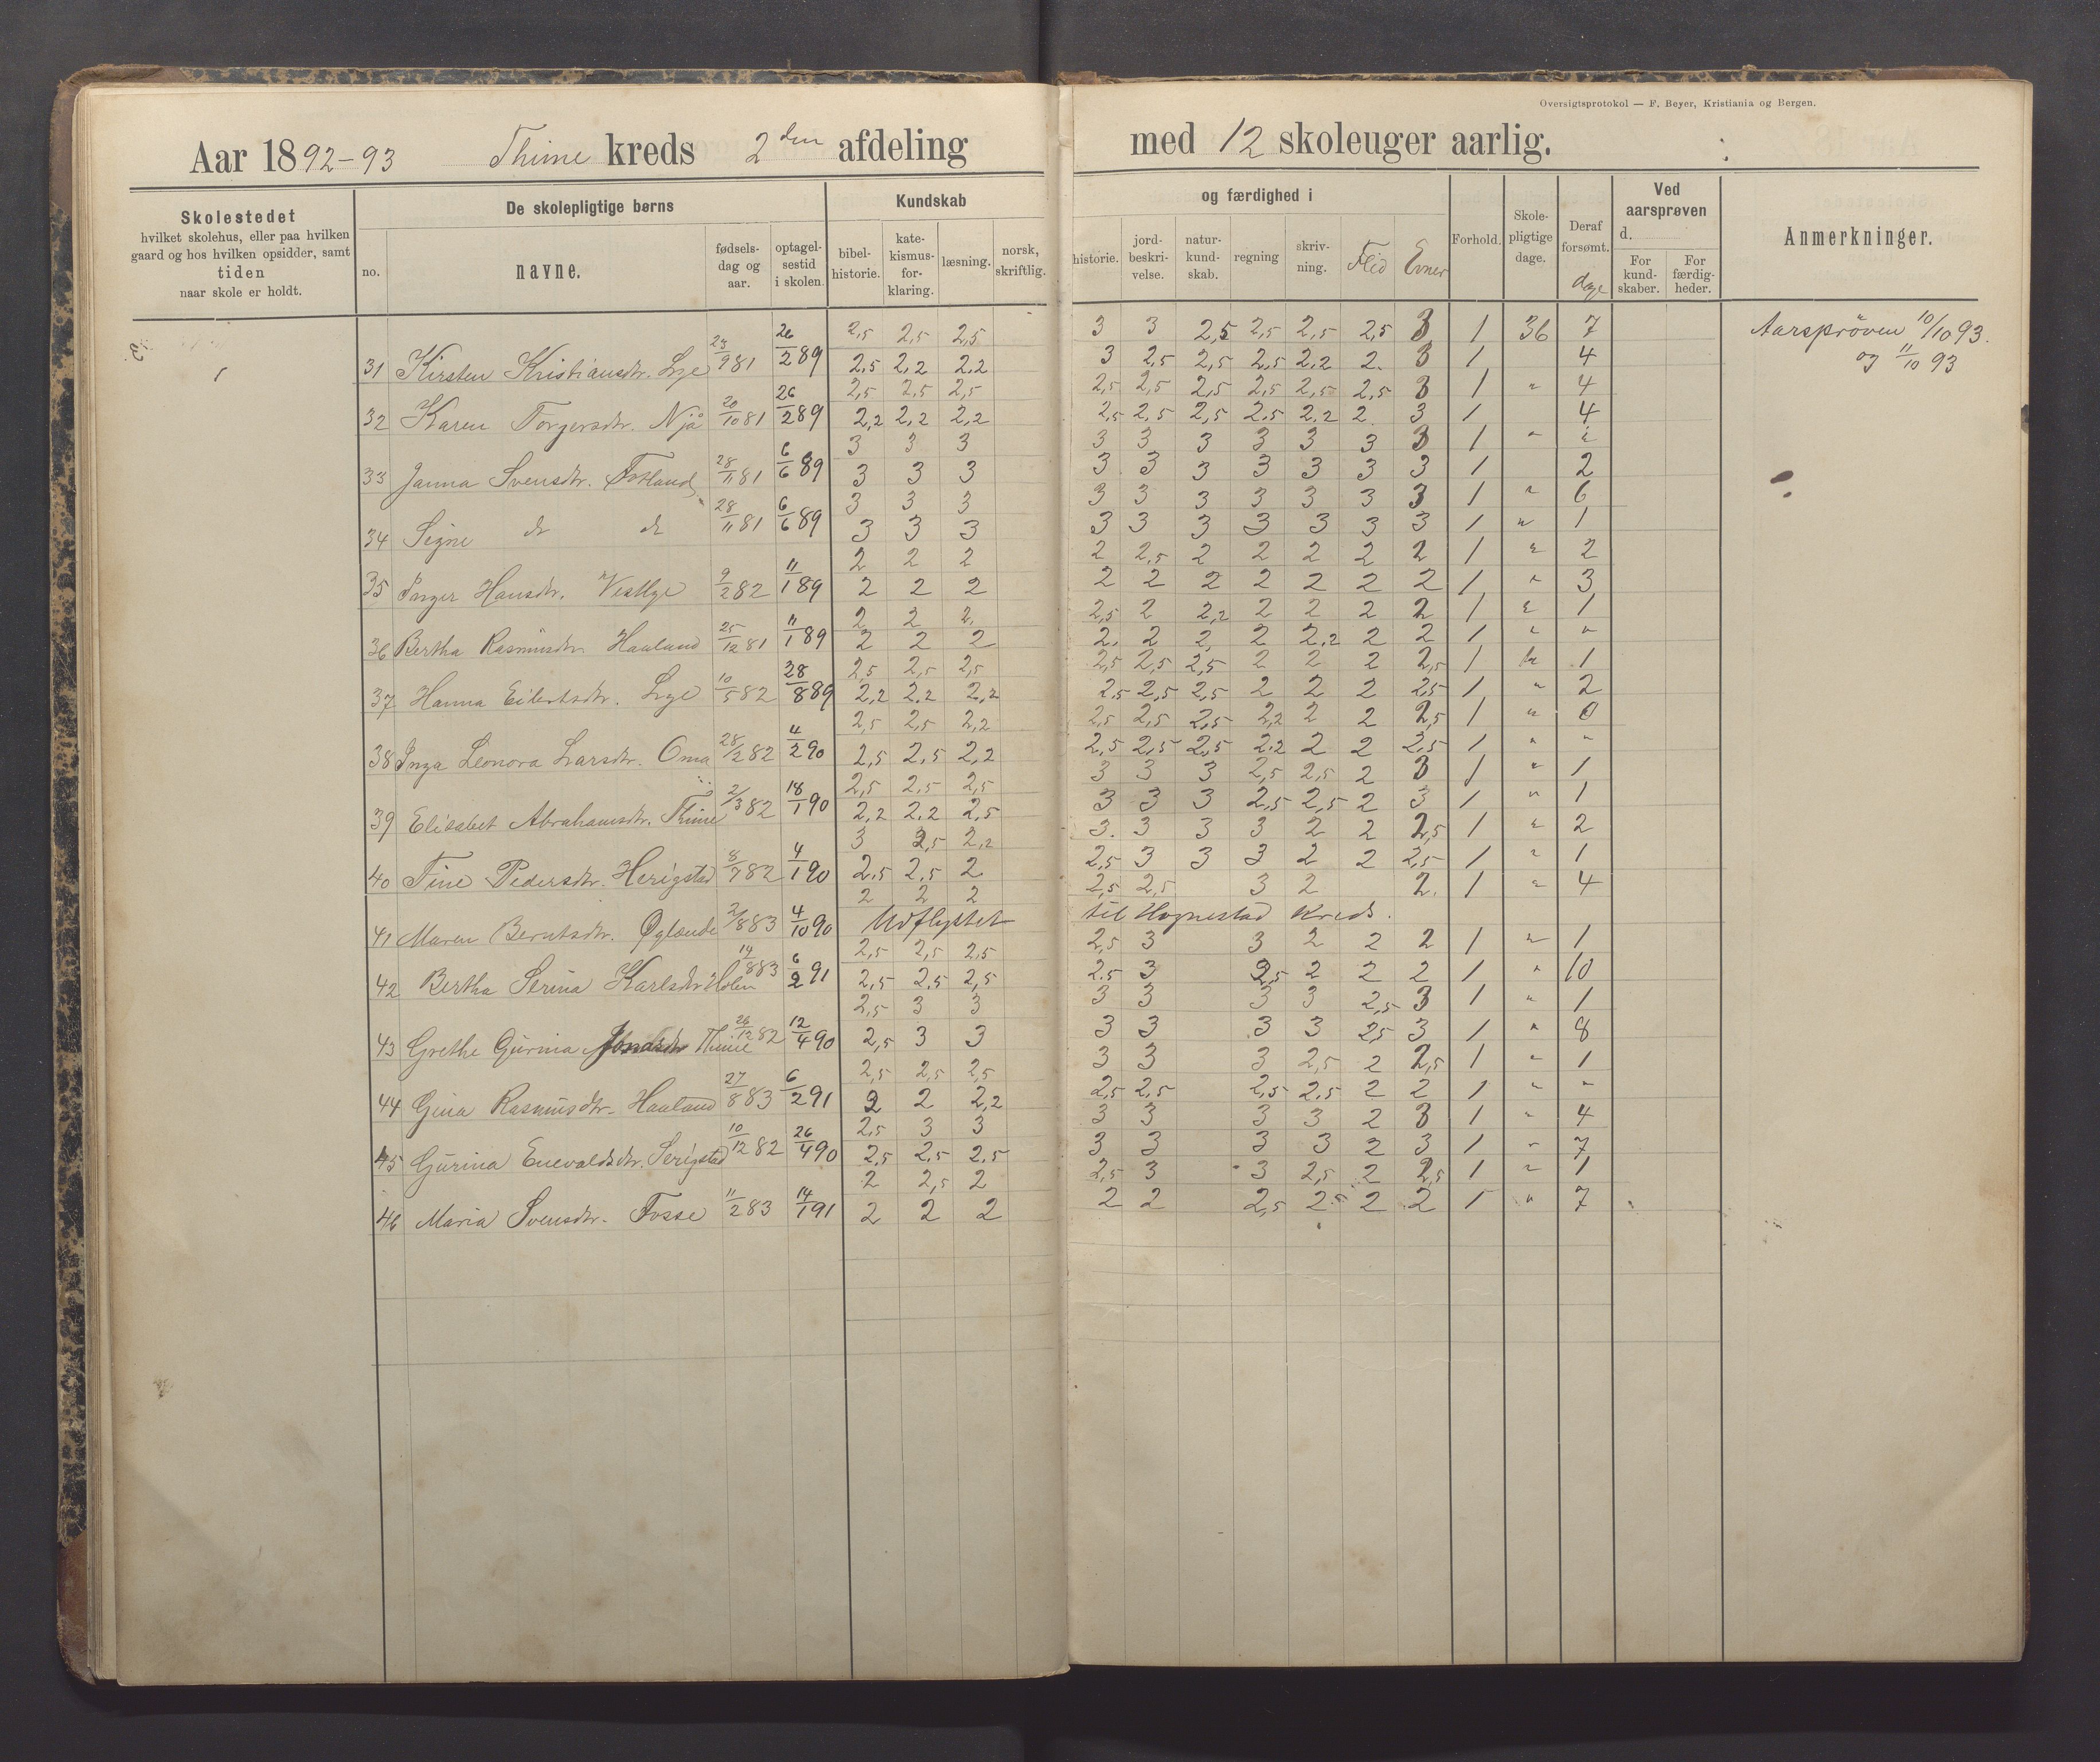 Oversigtsprotokol — F. Beyer, Kristiania og Bergen.
Aar 1892-93 Thime kreds 2den afdeling med 12 skoleuger aarlig.
Skolestedet
hvilket skolehus, eller paa hvilken
gaard og hos hvilken opsidder, samt
tiden
naar skole er holdt.
De skolepligtige børns
no.
navne.
fødsels-
dag og
aar.
optagel-
sestid
i skolen.
Kundskab
bibel-
historie.
kate-
kismus-
for-
klaring.
læsning.
norsk,
skriftlig.
og færdighed i
historie.
jord-
beskri-
velse.
natur-
kund-
skab.
regning
skriv-
ning.
Flid
Evner
Forhold.
Skole-
pligtige
dage.
Deraf
forsømt.
dage
Ved
aarsprøven
d.
For
kund-
skaber.
For
færdig-
heder.
Anmerkninger.
2,5 2,5 2,5 3 3 2,5 2,5 2,5 2,5 3 1 36 7 Aarspröven 10/10 93.
31 Kirsten Kristiansdtr. Lye 23/9 81 26/2 89 2,5 2,2 2,2 3 2,5 2,5 2,5 2,2 2. 3 1 4 og 11/10 93
2,5 2,5 2,5 2,5 2,5 2,5 2,5 2,5 2,5 3 1 " 4
32 Karen Torgersdtr. Njå 20/10 81 26/2 89 2,2 2,2 2,2 2,5 2,5 2,5 2,5 2,2 2. 3 1 4
3 3 3 3 3 3 3 3 3 3 1 "
33 Janna Svensdtr. Fotland 28/11 81 6/6 89 3 3 3 3 3 3 3 3 3 3 1 2
3 3 3 3 3 3 3 3 3 3 1 " 6
34 Signe do do 28/11 81 6/6 89 3 3 3 3 3 3 3 3 3 3 1 " 1
2 2 2 2 2,5 2 2 2 2 2 1 " 2
35 Inger Hansdtr. Vestlye 9/2 82 11/1 89 2 2 2 2 2 2 2 2 2 2 1 " 3
2 2 2. 2,5 2 2,2 2 2 2 2 1 " 1
36 Bertha Rasmusdtr Hauland 25/12 81 11/1 89 2 2 2 2. 2 2, 2 2,2 2 2 1 " "
2,5 2,5 2,5 2,5 2,5 2,5 2 2 2 2,5 1 " 1
37 Hanna Eilertsdtr. Lye 10/5 82 28/8 89 2,2 2,2 2,2 2,5 2,5 2,5 2 2 2 2,5 1 " 2
2,5 2,5 2,2 2,5 2,5 2,5 2,2 2 2 2,5 1 " 0
38 Inga Leonora Larsdtr. Oma 28/2 82 4/2 90 2,5 2,5 2,2 2,5 2,5 2,5 2,2 2 2 2,5 1 " "
2,5 2,5 2,5 3 3 3 2,5 2,5 2 3 1 " 1
39 Elisabet Abrahamsdtr. Thime 2/3 82 18/1 90 2,2 2,2 2,5 3 3 3 2,5 2,5 2 3 1 " 1
3 2,5 2,2 3. 3 3 3 2 2 2,5 1 " 2
40 Tine Pedersdtr. Herigstad 8/7 82 4/1 90 2,5 2,5 2 2,5 3 3 3 2 2 2,5 1 " 1
2 2 2 2,5 2,5 3 2 2. 1 " 4
41 Maren Berntsdtr. Øglænde 2/8 83 4/10 90 Udflyttet til Hognestad Kreds.
2,5 2,5 2,5 2,5 3 3 2 2 2 1 " 1
42 Bertha Serina Karlsdtr Holen 14/8 83 6/2 91 2,5 2,5 2,5 2,5 3 2,5 2 2 2 1 " 10
2,5 3 3 3 3 3 3 2,5 3 1 " 1
43 Grethe Gurina Thime 26/12 82 12/4 90 2,5 3 3 3 3 3 3 2,5 3 1 " 8
2,5 2,5 2,5 3 3 3 2,5 2 2,5 1 " 1
44 Gina Rasmusdtr. Hauland 27/8 83 6/2 91 2 2 2,2 2,5 2,5 2,5 2,5 2 2 1 " "
2,5 3 3 3 3 3 3 2 3 1 " 4
45 Gurina Enevaldsdtr. Serigstad 10/12 82 26/4 90 2,5 2,5 2,5 3 3 3 3 2 3 1 " 7
2 2,5 2 2,5 3 3 2,5 2 2,5 1 " 1
46 Maria Svensdtr. Fosse 11/2 83 14/1 91 2 2 2 2 2 2,5 2,5 2 2 1 " 7